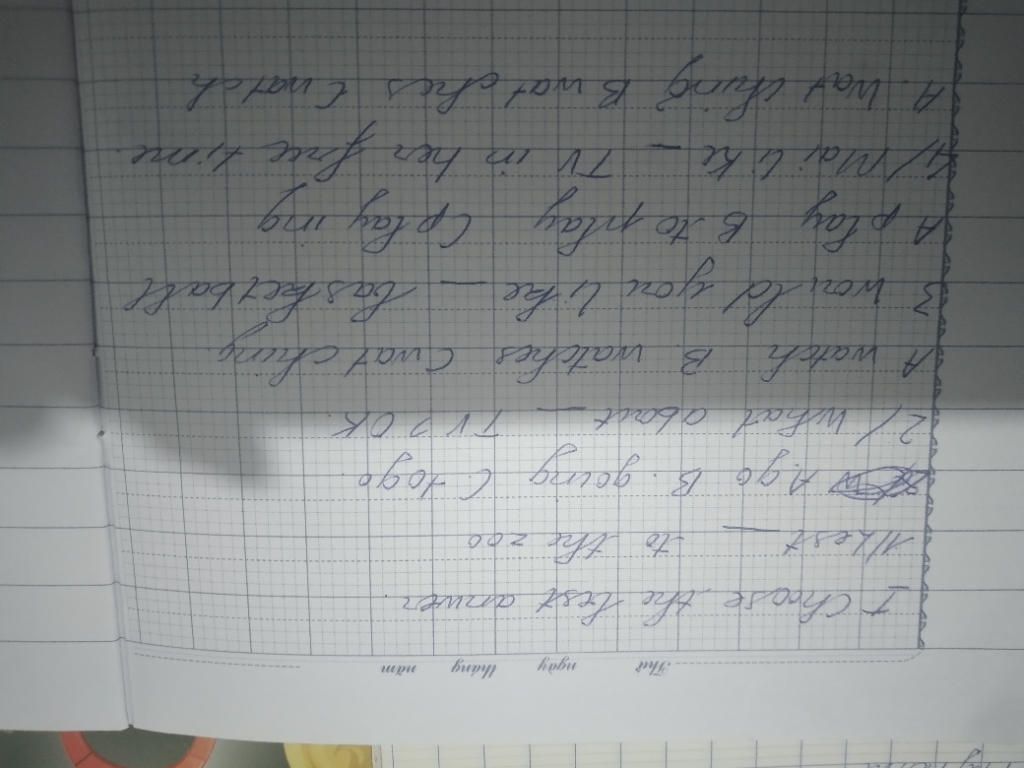 Thứ ngày tháng năm
I Choose the best anwer
1/ Lest _ to the zoo
A. go B. going C. to go
2/ What about _ TV? OK
A watch B. watches C watching.
3 would you like _ basketball
A play B to play C playing
4/ Mai like _ TV in her free time.
A. watching B watches C watch